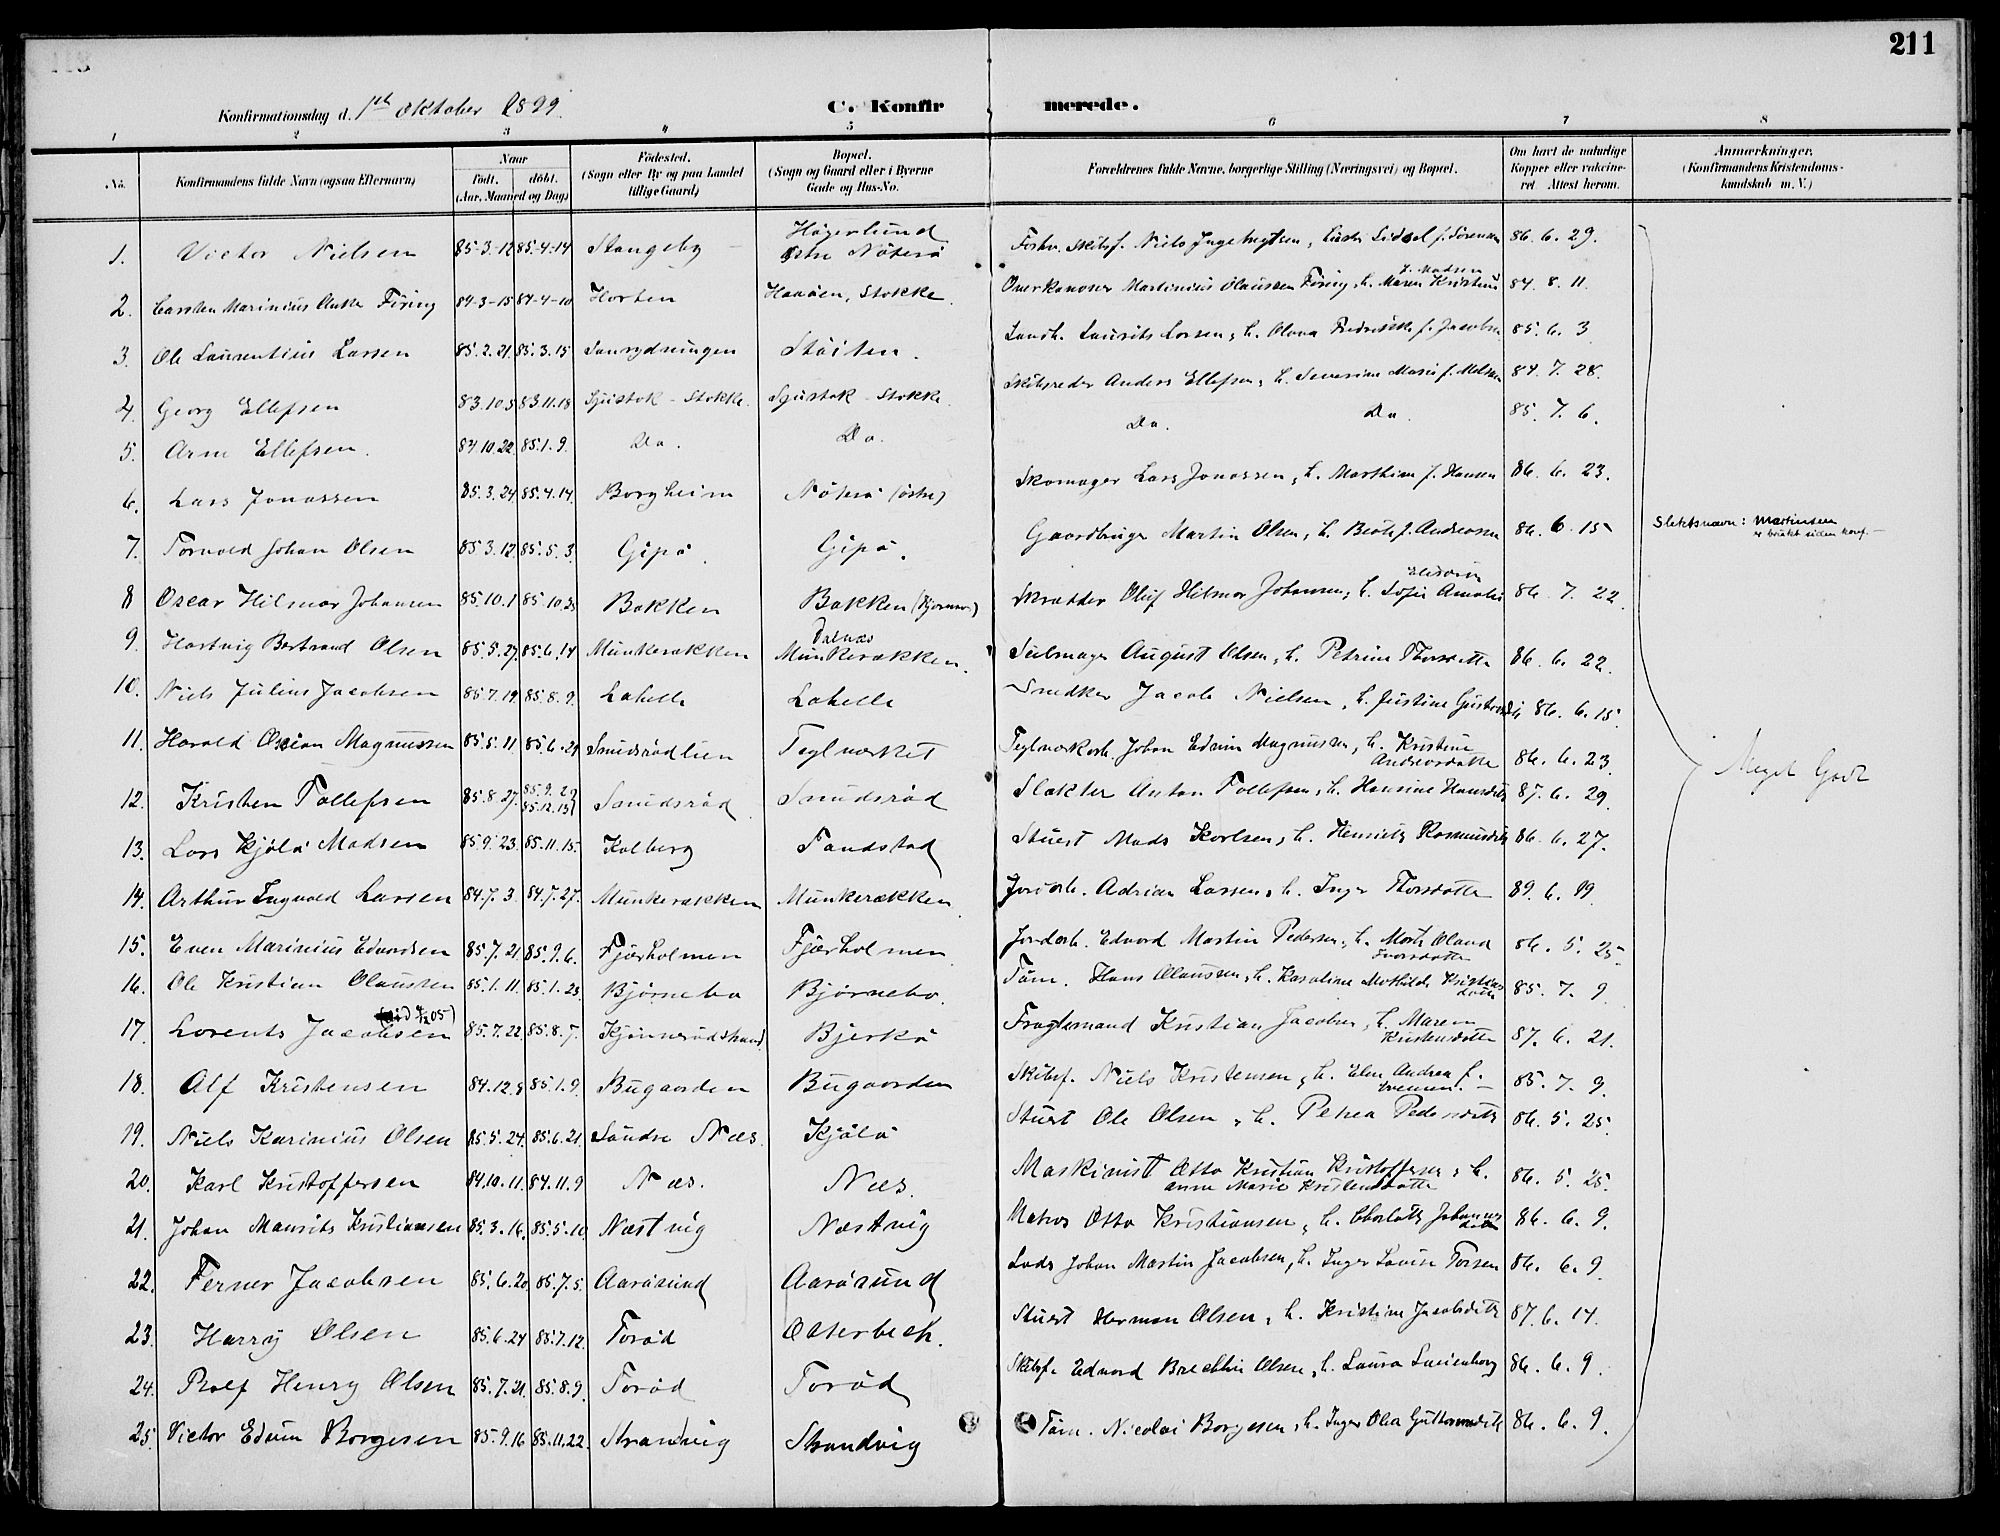 211
Konfirmationsdag d. 1ste Oktober 1899.
C. Konfirmerede.
1 2 3 4 5 6 7 8
No. Konfirmandens fulde Navn (ogsaa Efternavn) Naar født. døbt. (Aar, Maaned og Dag) Fødested. (Sogn eller By og paa Landet tillige Gaard) Bopæl. (Sogn og Gaard eller i Byerne Gade og Hus-No. Forældrenes fulde Navne, borgerlige Stilling (Næringsvei) og Bopæl. Om havt de naturlige Kopper eller vakcineret Attest herom. Anmærkninger. (Konfirmandens Kristendomskundskab m. V.)
1. Victor Nielsen 85-3-12 85-4-14 Stangeby Høgerlund Østre Nøterø Forhv. Skibsf. Niels 86. 6. 29.
2. Carsten Marinius Føring 84-3-15 84-4-10 Horten Stokke Martinius Olaussen Føring, h. Maren Kristine f. Madsen 84. 8. 11.
3. Ole Laurentius Larsen 85.2.21. 85.3.15 Sanrydningen Støiten. Laurits Larsen, h. Olava Fredrikke f. Jacobsen 85. 6. 3
4. Georg Ellefsen 83.10.5 83.11.18 Sjustok - Stokke. Sjustok - Stokke. Skibsreder Anders Ellefsen, h. Severine Marie f. Melsen 84. 7. 28.
5. Arne Ellefsen. 84.10.22 85.1.9. Do. Do. Do. Do. 85. 7. 6.
6. Lars Jonassen 85.3.24 85.4.14. Borgheim Nøterø (østre) Skomager Lars Jonassen, h. Marthine f. Hansen 86. 6. 23.
7. Torvald Johan Olsen 85.3.12. 85.5.3. Gipø. Gipø. Gaardbruger Martin Olsen, h. Beate f. Andreassen 86. 6. 15 Slektsnavn: Martinsen er brukt siden konf. -
8 Oscar Hilmar Johansen 85.10.1 85.10.25 Bakken Bakken Skrædder Oluf Hilmar Johansen, h. Sofie Amalie 86. 7. 22.
9. Hartvig Bertrand Olsen 85.5.27. 85.6.14 Munkerækken Munkerækken. Seilmager August Olsen, h. Petrine Thorsdatter 86. 6. 22.
10. Niels Julius Jacobsen 85.7.19. 85.8.9. Lahelle Lahelle Snedker Jacob Nielsen, h. Justine 86. 6. 15.
11. Harald Magnussen 85.5.11. 85.6.21 Smidsrødlien Teglværket Teglværksarb. Johan Edvin Magnussen, h. Kristine Andreasdatter 86. 6. 23.
12. Kristen Tollefsen 85.8.27. 85.9.29 85.12.13) Smidsrød Smidsrød Slakter Anton Tollefsen, h. Hansine Hansdatter 87. 6. 29. Meget Godt
13. Lars Kjølø Madsen 85.9.23. 85.11.15. Kolberg Fandstad Stuert Mads Karlsen, h. Henriette Rasmusdatter 86. 6. 27.
14. Arthur Ingvald Larsen 84.7.3. 84.7.27. Munkerækken Munkerækken. Jordarb. Adrian Larsen, h. Inger Thorsdatter 89. 6. 19.
15. Even Marinius Edvardsen 85.7.21 85.9.6. Fjærholmen Fjærholmen Jordarb. Edvard Martin Pedersen, h. Olava Iversdatter 86. 5. 25.
16. Ole Kristian Olaussen 85.1.11. 85.1.23 Bjørnebo Bjørnebo. Tøm. Hans Olaussen, h. Karoline Mathilde 85. 7. 9.
17. Lorents Jacobsen 85.7.22 85.8.7. Kjønnerødstrand Bjerkø Fragtemand Kristian Jacobsen, h. Maren Kristensdatter 87. 6. 21.
18. Alf Kristensen 84.12.8 85.1.9. Bugaarden Bugaarden Skibsf. Niels Kristensen, h. Elen Andrea f. Evensen. - 85. 7. 9.
19. Niels Karinius Olsen 85.5.24. 85.6.21 Søndre Næs. Kjølø Stuert Ole Olsen, h. Petrea Pedersdatter 86. 5. 25.
20. Karl Kristoffersen 84.10.11. 84.11.9 Næs. Næs. Maskinist Otto Kristian Kristoffersen, h. Anne Marie Kristensdatter 86. 5. 25.
21. Johan Maurits Kristiansen 85.3.16. 85.5.10 Næstvig Næstvig Matros Otto Kristiansen, h. Charlotte Johannesdatter 86. 6. 9.
22. Ferner Jacobsen 85.6.20 85.7.5. Aarøsund Aarøsund Lods Johan Martin Jacobsen, h. Inger Lovise Torsen 86. 6. 9.
23. Harry Olsen 85.6.24 85.7.12. Torød Østerbeck. Stuert Herman Olsen, h. Kristine Jacobsdatter 87. 6. 14.
24. Rolf Henry Olsen 85.7.21. 85.8.9. Torød Torød Skibsf. Edvard Olsen, h. Laura 86. 6. 9.
25. Victor Edvin Borgesen 85.9.16 85.11.22. Strandvig Strandvig Tøm. Nicolai Borgesen, h. Inger Olea Guttormsdatter 86. 6. 9.